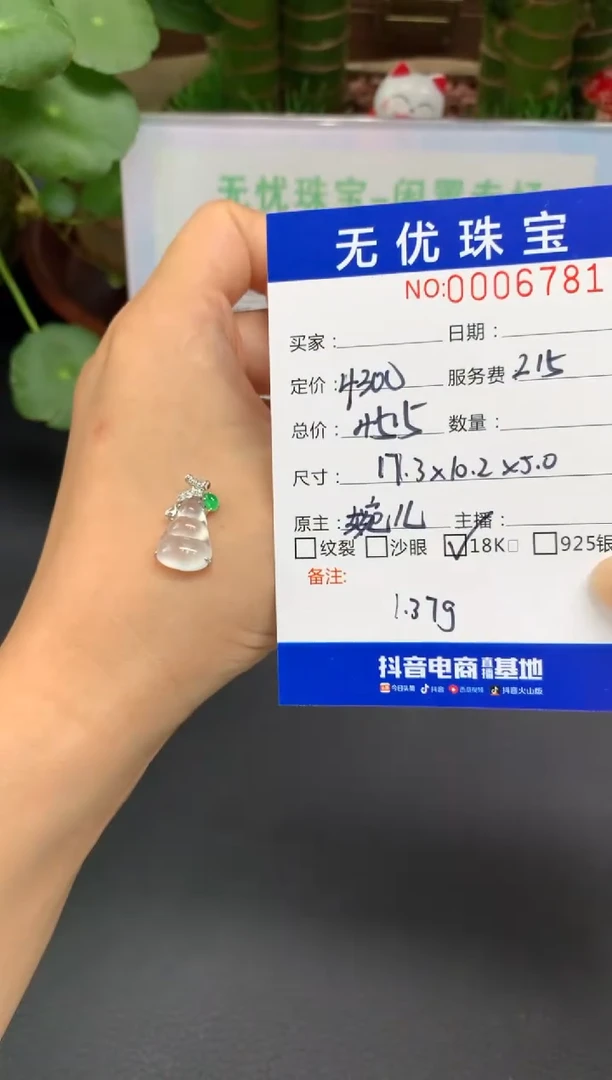 无忧珠宝-闲置专场
无忧珠宝
NO:0006781
买家: 日期:
定价:4300 服务费 215
总价:4515 数量:
尺寸: 17.3x10.2x5.0
原主:婉儿 主播:
□纹裂 □沙眼 ☑18K□ □925银
备注:
1.37g
抖音电商直播基地
今日头条 抖音 西瓜视频 抖音火山版